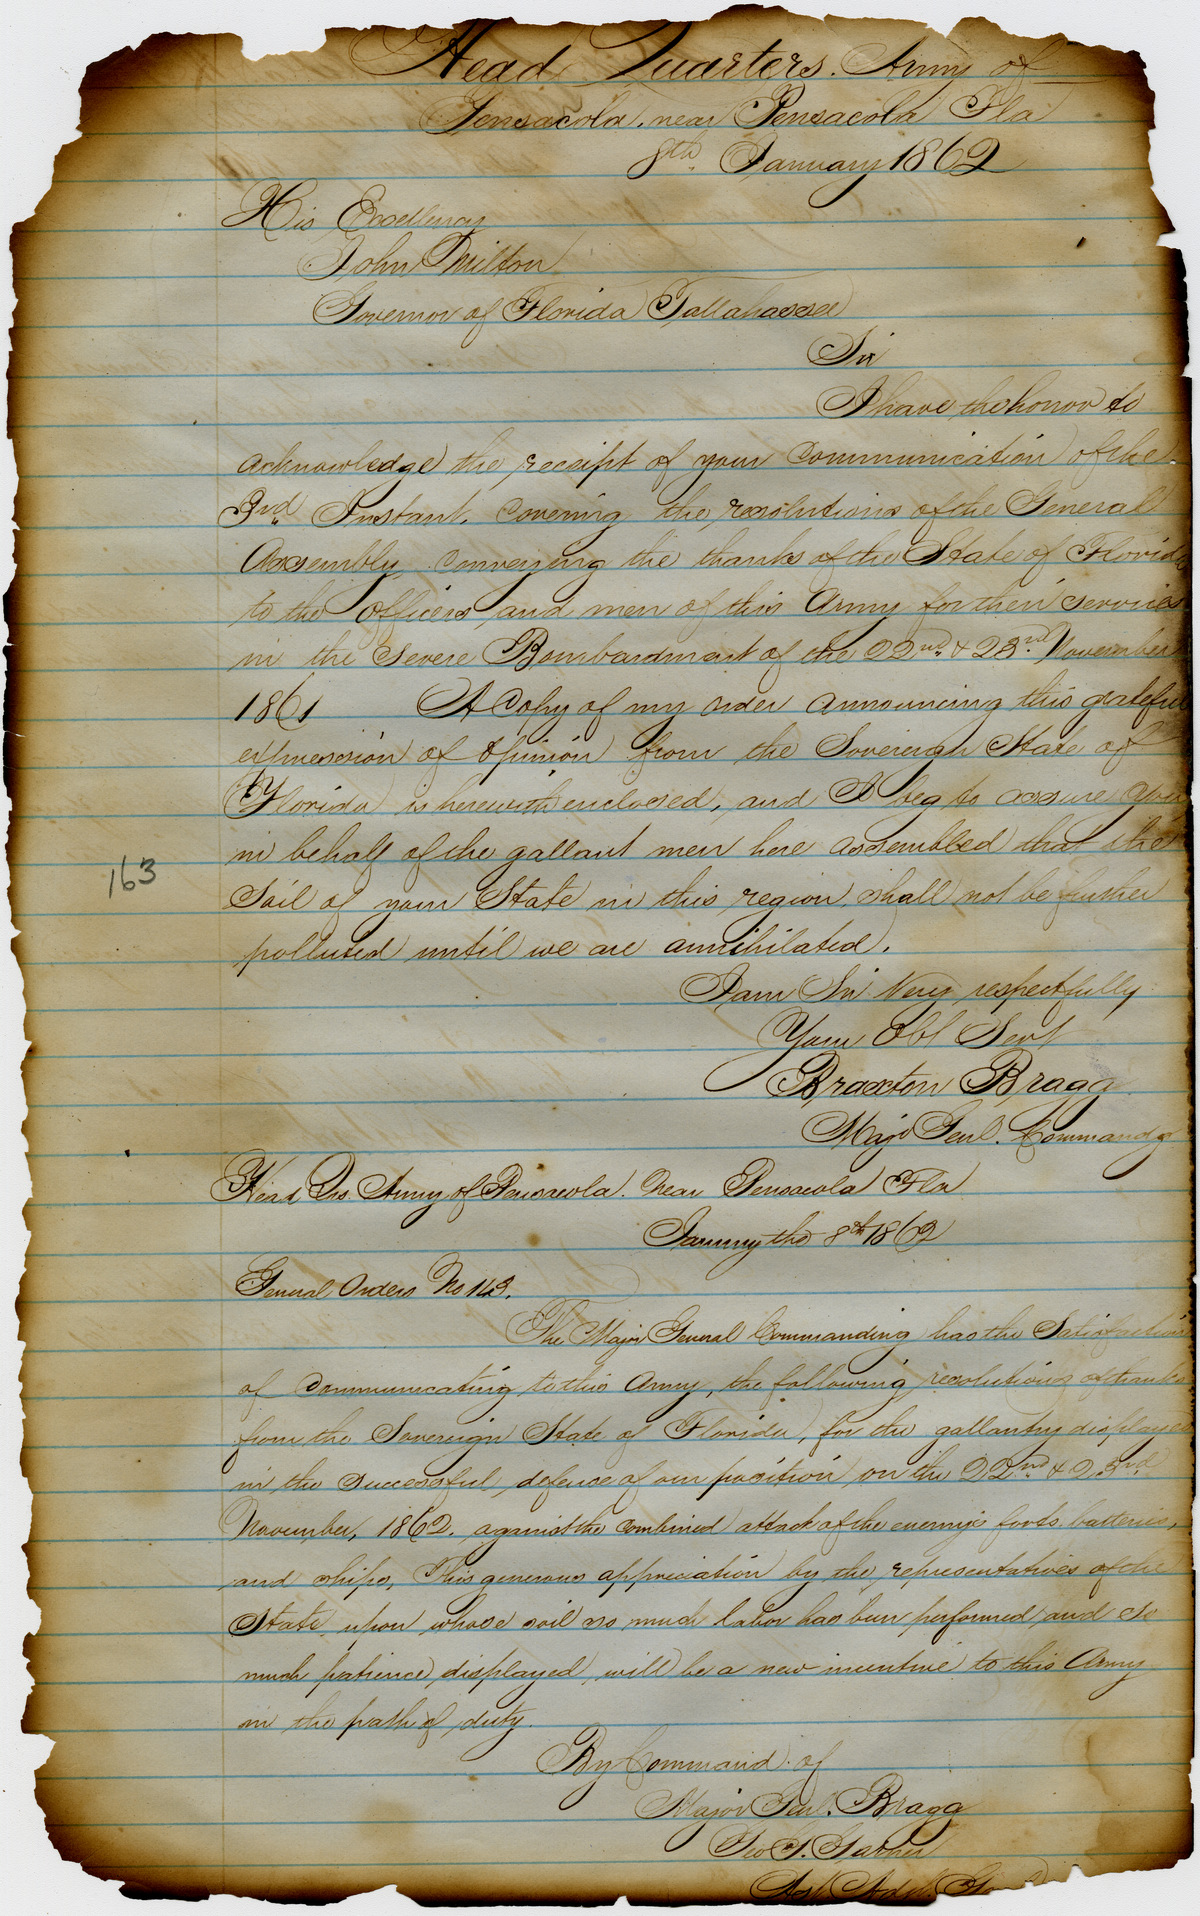 Head Quarters. Army of
Pensacola, near Pensacola Fla
8th January 1862
His Excellency
John Milton
Governor of Florida Tallahassee
Sir
I have the honor to
acknowledge the receipt of your Communication of the
3rd Instant, Covering the resolutions of the General
Assembly, Conveying the thanks of the State of Florida
to the Officers and men of this Army for their services
in the Severe Bombardment of the 22nd & 23rd November
1861 A Copy of my order announcing this grateful
expression of Opinion from the Sovereign State of
Florida is herewith enclosed, and I beg to assure you
in behalf of the gallant men here assembled that the
Soil of your State in this region, shall not be further
polluted until we are annihilated.
I am Sir Very respectfully
Your Obt Servt
Braxton Bragg
Majr Genl. Commandg
163
Head Qrs. Army of Pensacola. Near Pensacola Fla
January the 8th 1862
General Orders No 143.
The Major General Commanding has the Satisfaction
of Communicating to this Army, the following resolutions of thanks
from the Sovereign State of Florida, for the gallantry displayed
in the successful defense of our position on the 22nd & 23rd
November, 1862. against the combined attack of the enemy's forts, batteries,
and ships, This generous appreciation by the representatives of the
State, upon whose soil so much labor has been performed and so
much patience displayed, will be a new incentive to this Army
in the path of duty.
By Command of
Major Genl. Bragg
Geo. G. Garner
Asst. Adjt. Gen